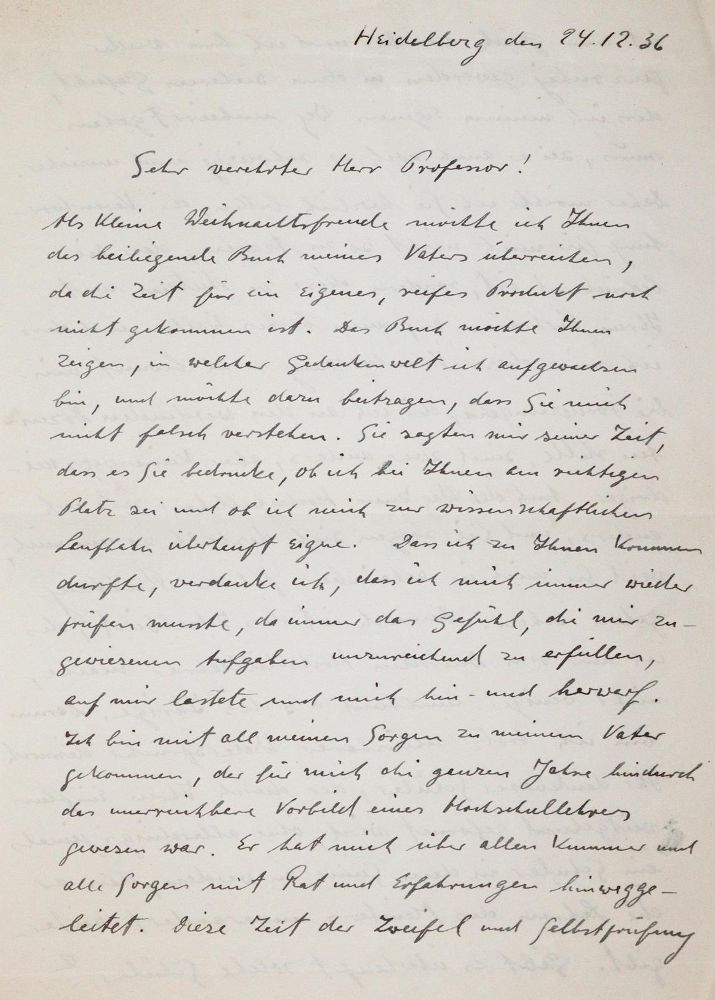 Heidelberg den 24.12.36
Sehr verehrter Herr Professor!
Als kleine Weihnachtsfreude möchte ich Ihnen
das beiliegende Buch meines Vaters überreichen,
da die Zeit für ein eigenes, reifes Produkt noch
nicht gekommen ist. Das Buch möchte Ihnen
zeigen, in welcher Gedankenwelt ich aufgewachsen
bin, und möchte dazu beitragen, dass Sie mich
nicht falsch verstehen. Sie sagten mir seiner Zeit,
dass es Sie bedrücke, ob ich bei Ihnen am richtigen
Platz sei und ob ich mich zur wissenschaftlichen
Laufbahn überhaupt eigne. Dass ich zu Ihnen kommen
durfte, verdanke ich, dass ich mich immer wieder
prüfen musste, da immer das Gefühl, die mir zu-
gewiesenen Aufgaben unzureichend zu erfüllen,
auf mir lastete und mich hin- und herwarf.
Ich bin mit all meinen Sorgen zu meinem Vater
gekommen, der für mich die ganzen Jahre hindurch
das unerreichbare Vorbild eines Hochschullehrers
gewesen war. Er hat mich über allen Kummer und
alle Sorgen mit Rat und Erfahrungen hinwegge-
leitet. Diese Zeit der Zweifel und Selbstprüfung